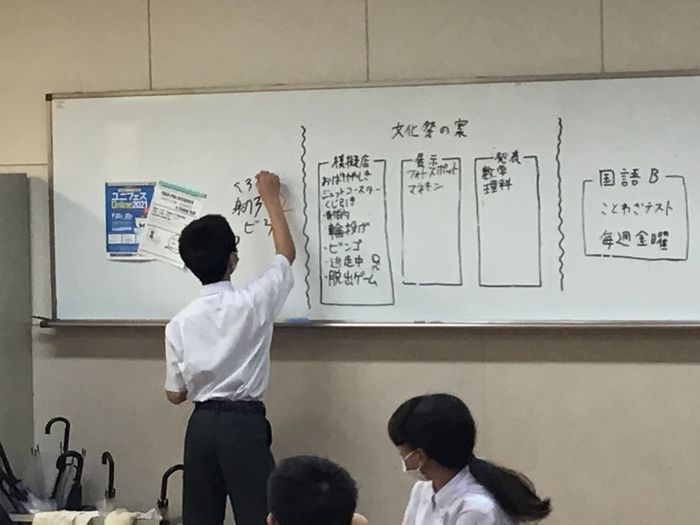 ユニフェス
Online2021
くろ
射
ビ
文化祭の案
模擬店
おばけやしき
ジェットコースター
くじ引き
・射的
・輪投げ
・ビンゴ
・逃走中
・脱出ゲーム
展示
フォトスポット
マネキン
発表
数学
理科
国語B
ことわざテスト
毎週金曜